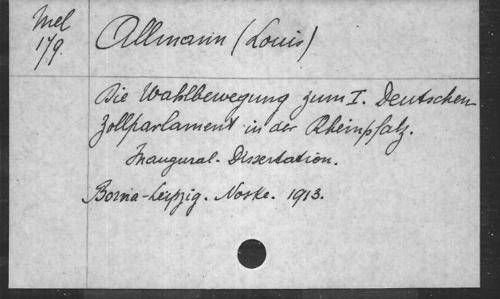 Mel
179.
Allmann (Louis)
Die Wahlbewegung zum I. Deutschen
Zollparlament in der Rheinpfalz.
Inaugural-Dissertation.
Borna-Leipzig. Noske. 1913.